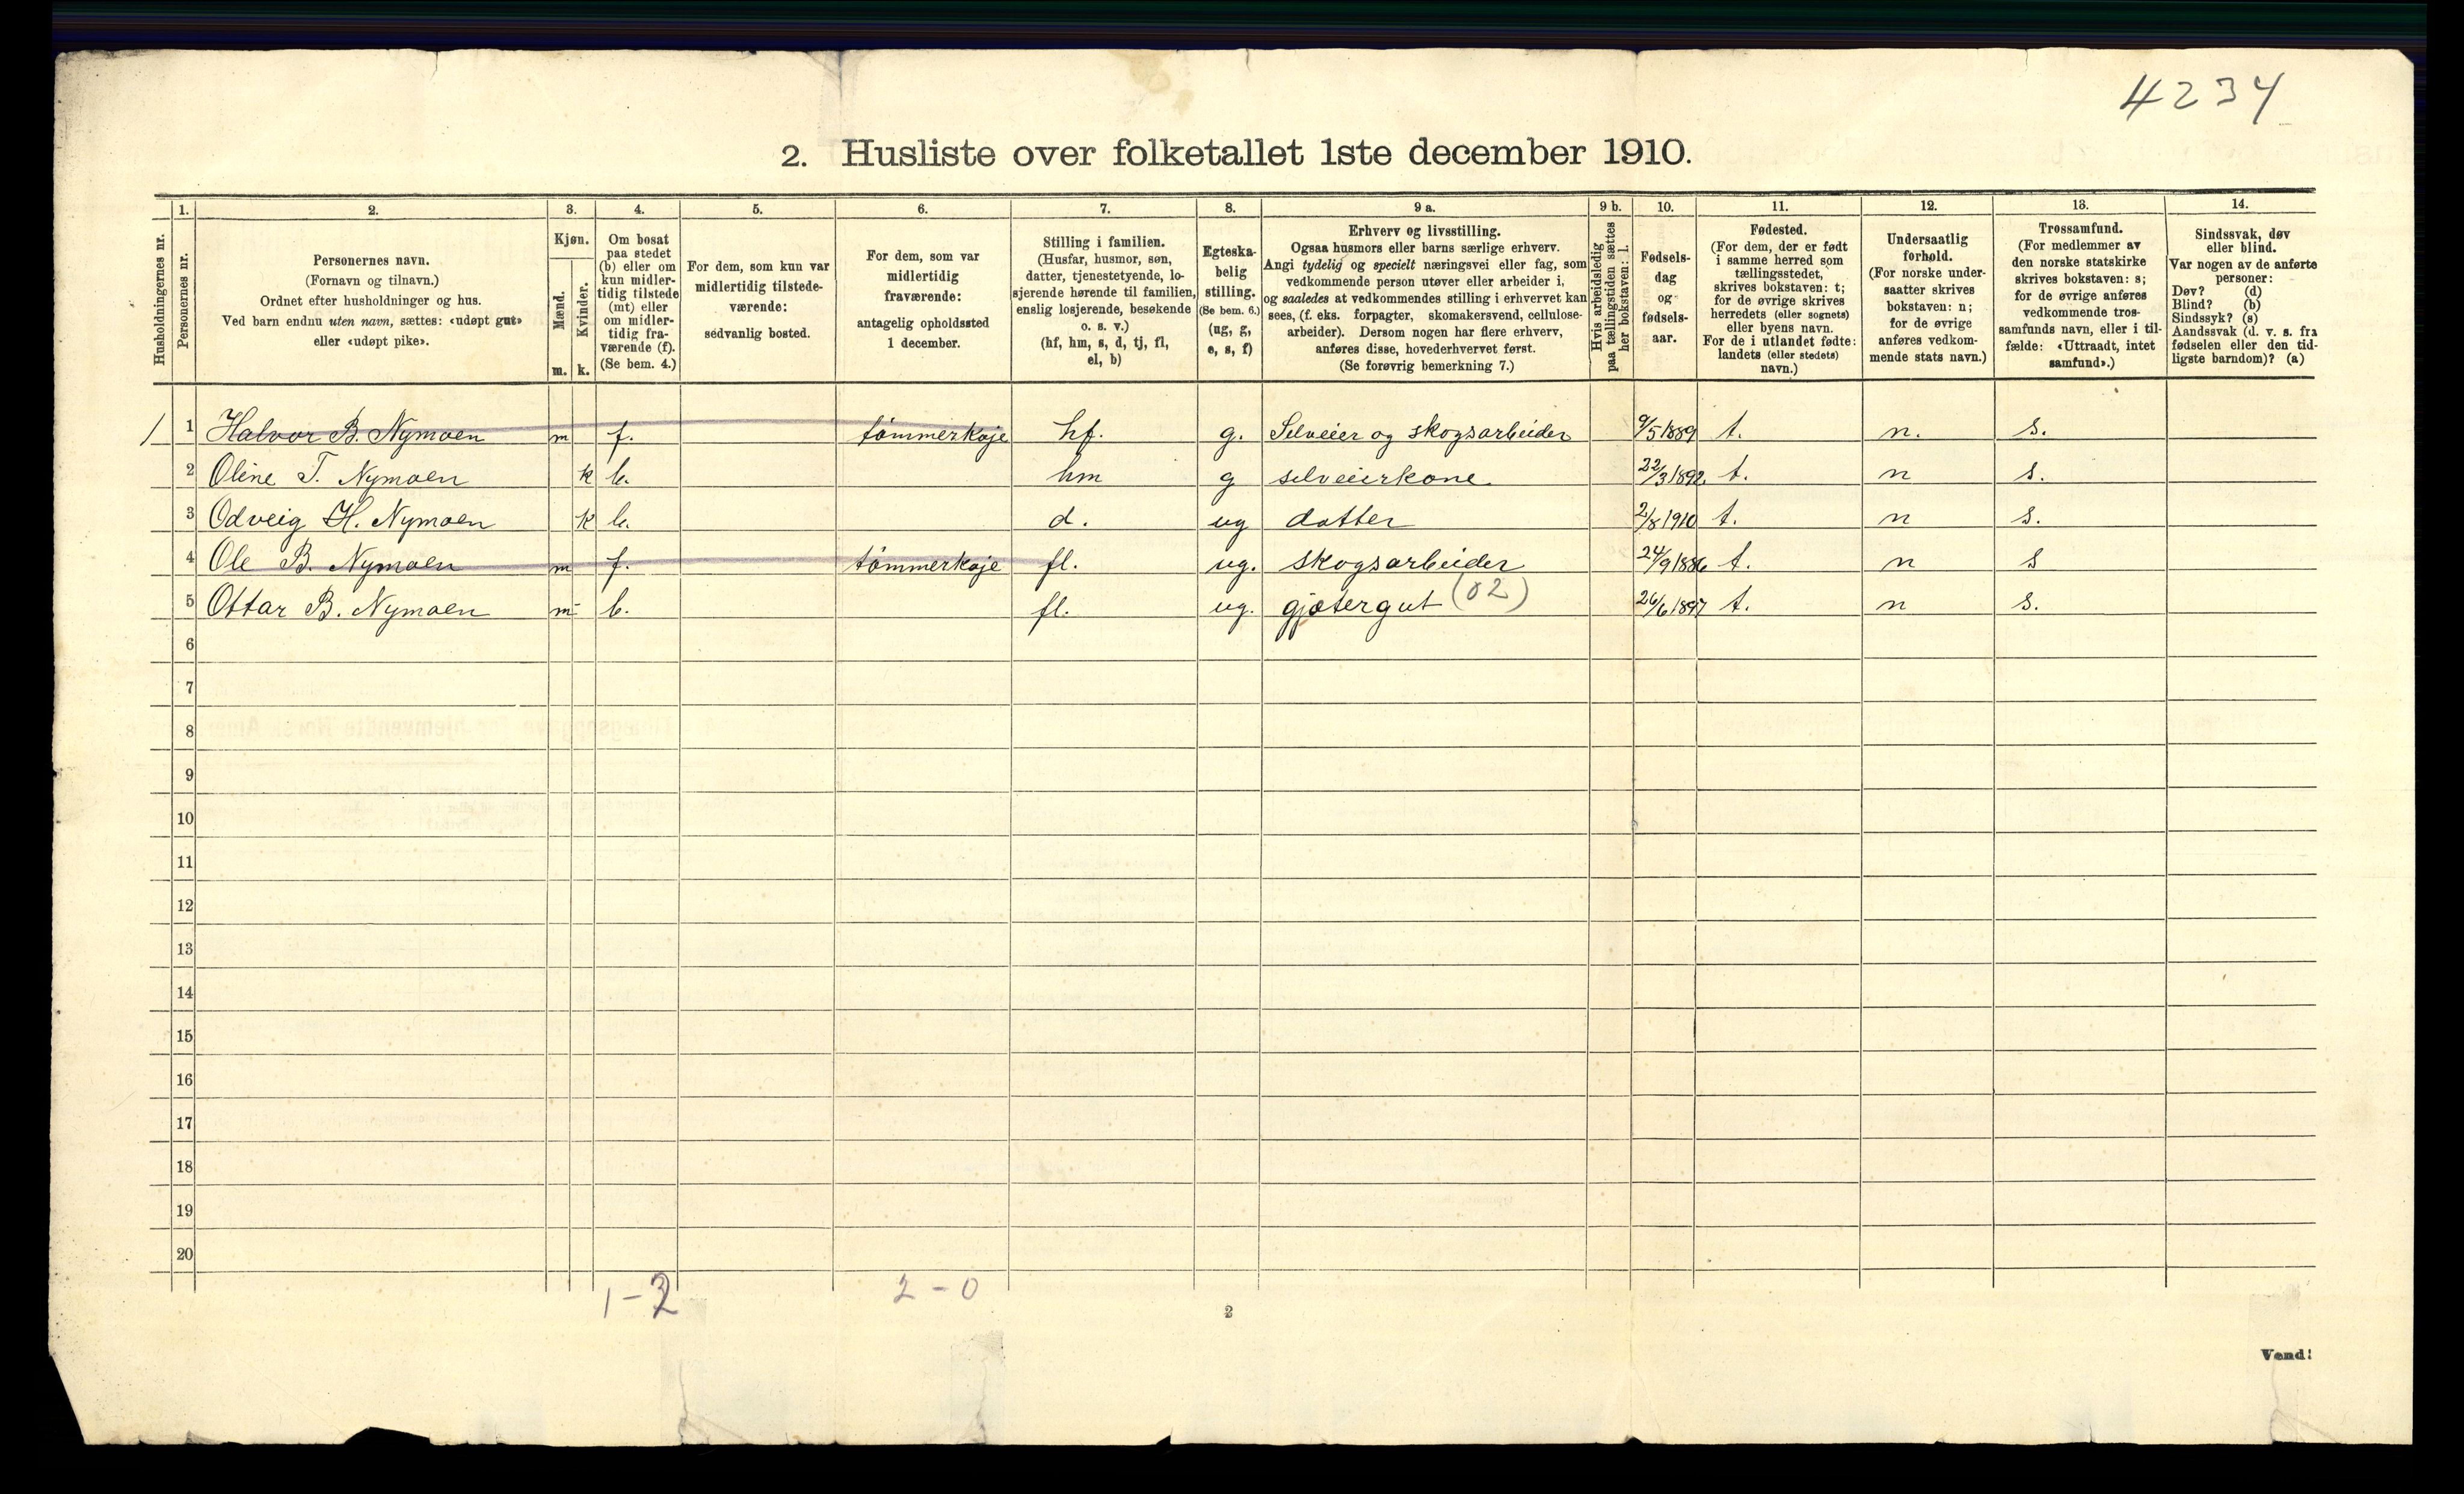 4234
2. Husliste over folketallet 1ste december 1910.
Husholdningernes nr.
1.
Personernes nr.
2.
Personernes navn.
(Fornavn og tilnavn.)
Ordnet efter husholdninger og hus.
Ved barn endnu uten navn, sættes: «udøpt gut»
eller «udøpt pike».
3.
Kjøn.
Mænd.
Kvinder.
m. k.
4.
Om bosat
paa stedet
(b) eller om
kun midler-
tidig tilstede
(mt) eller
om midler-
tidig fra-
værende (f).
(Se bem. 4.)
5.
For dem, som kun var
midlertidig tilstede-
værende:
sedvanlig bosted.
6.
For dem, som var
midlertidig
fraværende:
antagelig opholdssted
1 december.
7.
Stilling i familien.
(Husfar, husmor, søn,
datter, tjenestetyende, lo-
sjerende hørende til familien,
enslig losjerende, besøkende
o. s. v.)
(hf, hm, s, d, tj, fl,
el, b)
8.
Egteska-
belig
stilling.
(Se bem. 6.)
(ug, g,
e, s, f)
9 a.
Erhverv og livsstilling.
Ogsaa husmors eller barns særlige erhverv.
Angi tydelig og specielt næringsvei eller fag, som
vedkommende person utøver eller arbeider i,
og saaledes at vedkommendes stilling i erhvervet kan
sees, (f. eks. forpagter, skomakersvend, cellulose-
arbeider). Dersom nogen har flere erhverv,
anføres disse, hovederhvervet først.
(Se forøvrig bemerkning 7.)
9 b.
Hvis arbeidsledig
paa tællingstiden sættes
her bokstaven: l.
10.
Fødsels-
dag
og
fødsels-
aar.
11.
Fødested.
(For dem, der er født
i samme herred som
tællingsstedet,
skrives bokstaven: t;
for de øvrige skrives
herredets (eller sognets)
eller byens navn.
For de i utlandet fødte:
landets (eller stedets)
navn.)
12.
Undersaatlig
forhold.
(For norske under-
saatter skrives
bokstaven: n;
for de øvrige
anføres vedkom-
mende stats navn.)
13.
Trossamfund.
(For medlemmer av
den norske statskirke
skrives bokstaven: s;
for de øvrige anføres
vedkommende tros-
samfunds navn, eller i til-
fælde: «Uttraadt, intet
samfund».)
14.
Sindssvak, døv
eller blind.
Var nogen av de anførte
personer:
Døv? (d)
Blind? (b)
Sindssyk? (s)
Aandssvak (d. v. s. fra
fødselen eller den tid-
ligste barndom)? (a)
1 1 Halvor B. Nymoen m f. tømmerkoje hf. g. Selveier og skogsarbeider 9/5 1889 t. n. s.
2 Oline T. Nymoen k b. hm g selveierkone 22/3 1892. t. n s.
3 Odveig H. Nymoen k b. d. ug datter 2/8 1910 t. n s.
4 Ole B. Nymoen m f. tømmerkoje fl. ug. skogsarbeider 24/9 1886 t. n s
5 Ottar B. Nymoen m b. fl. ug. gjætergut (02) 26/6 1897 t. n s.
6
7
8
9
10
11
12
13
14
15
16
17
18
19
20
1-2 2-0
2
Vend!